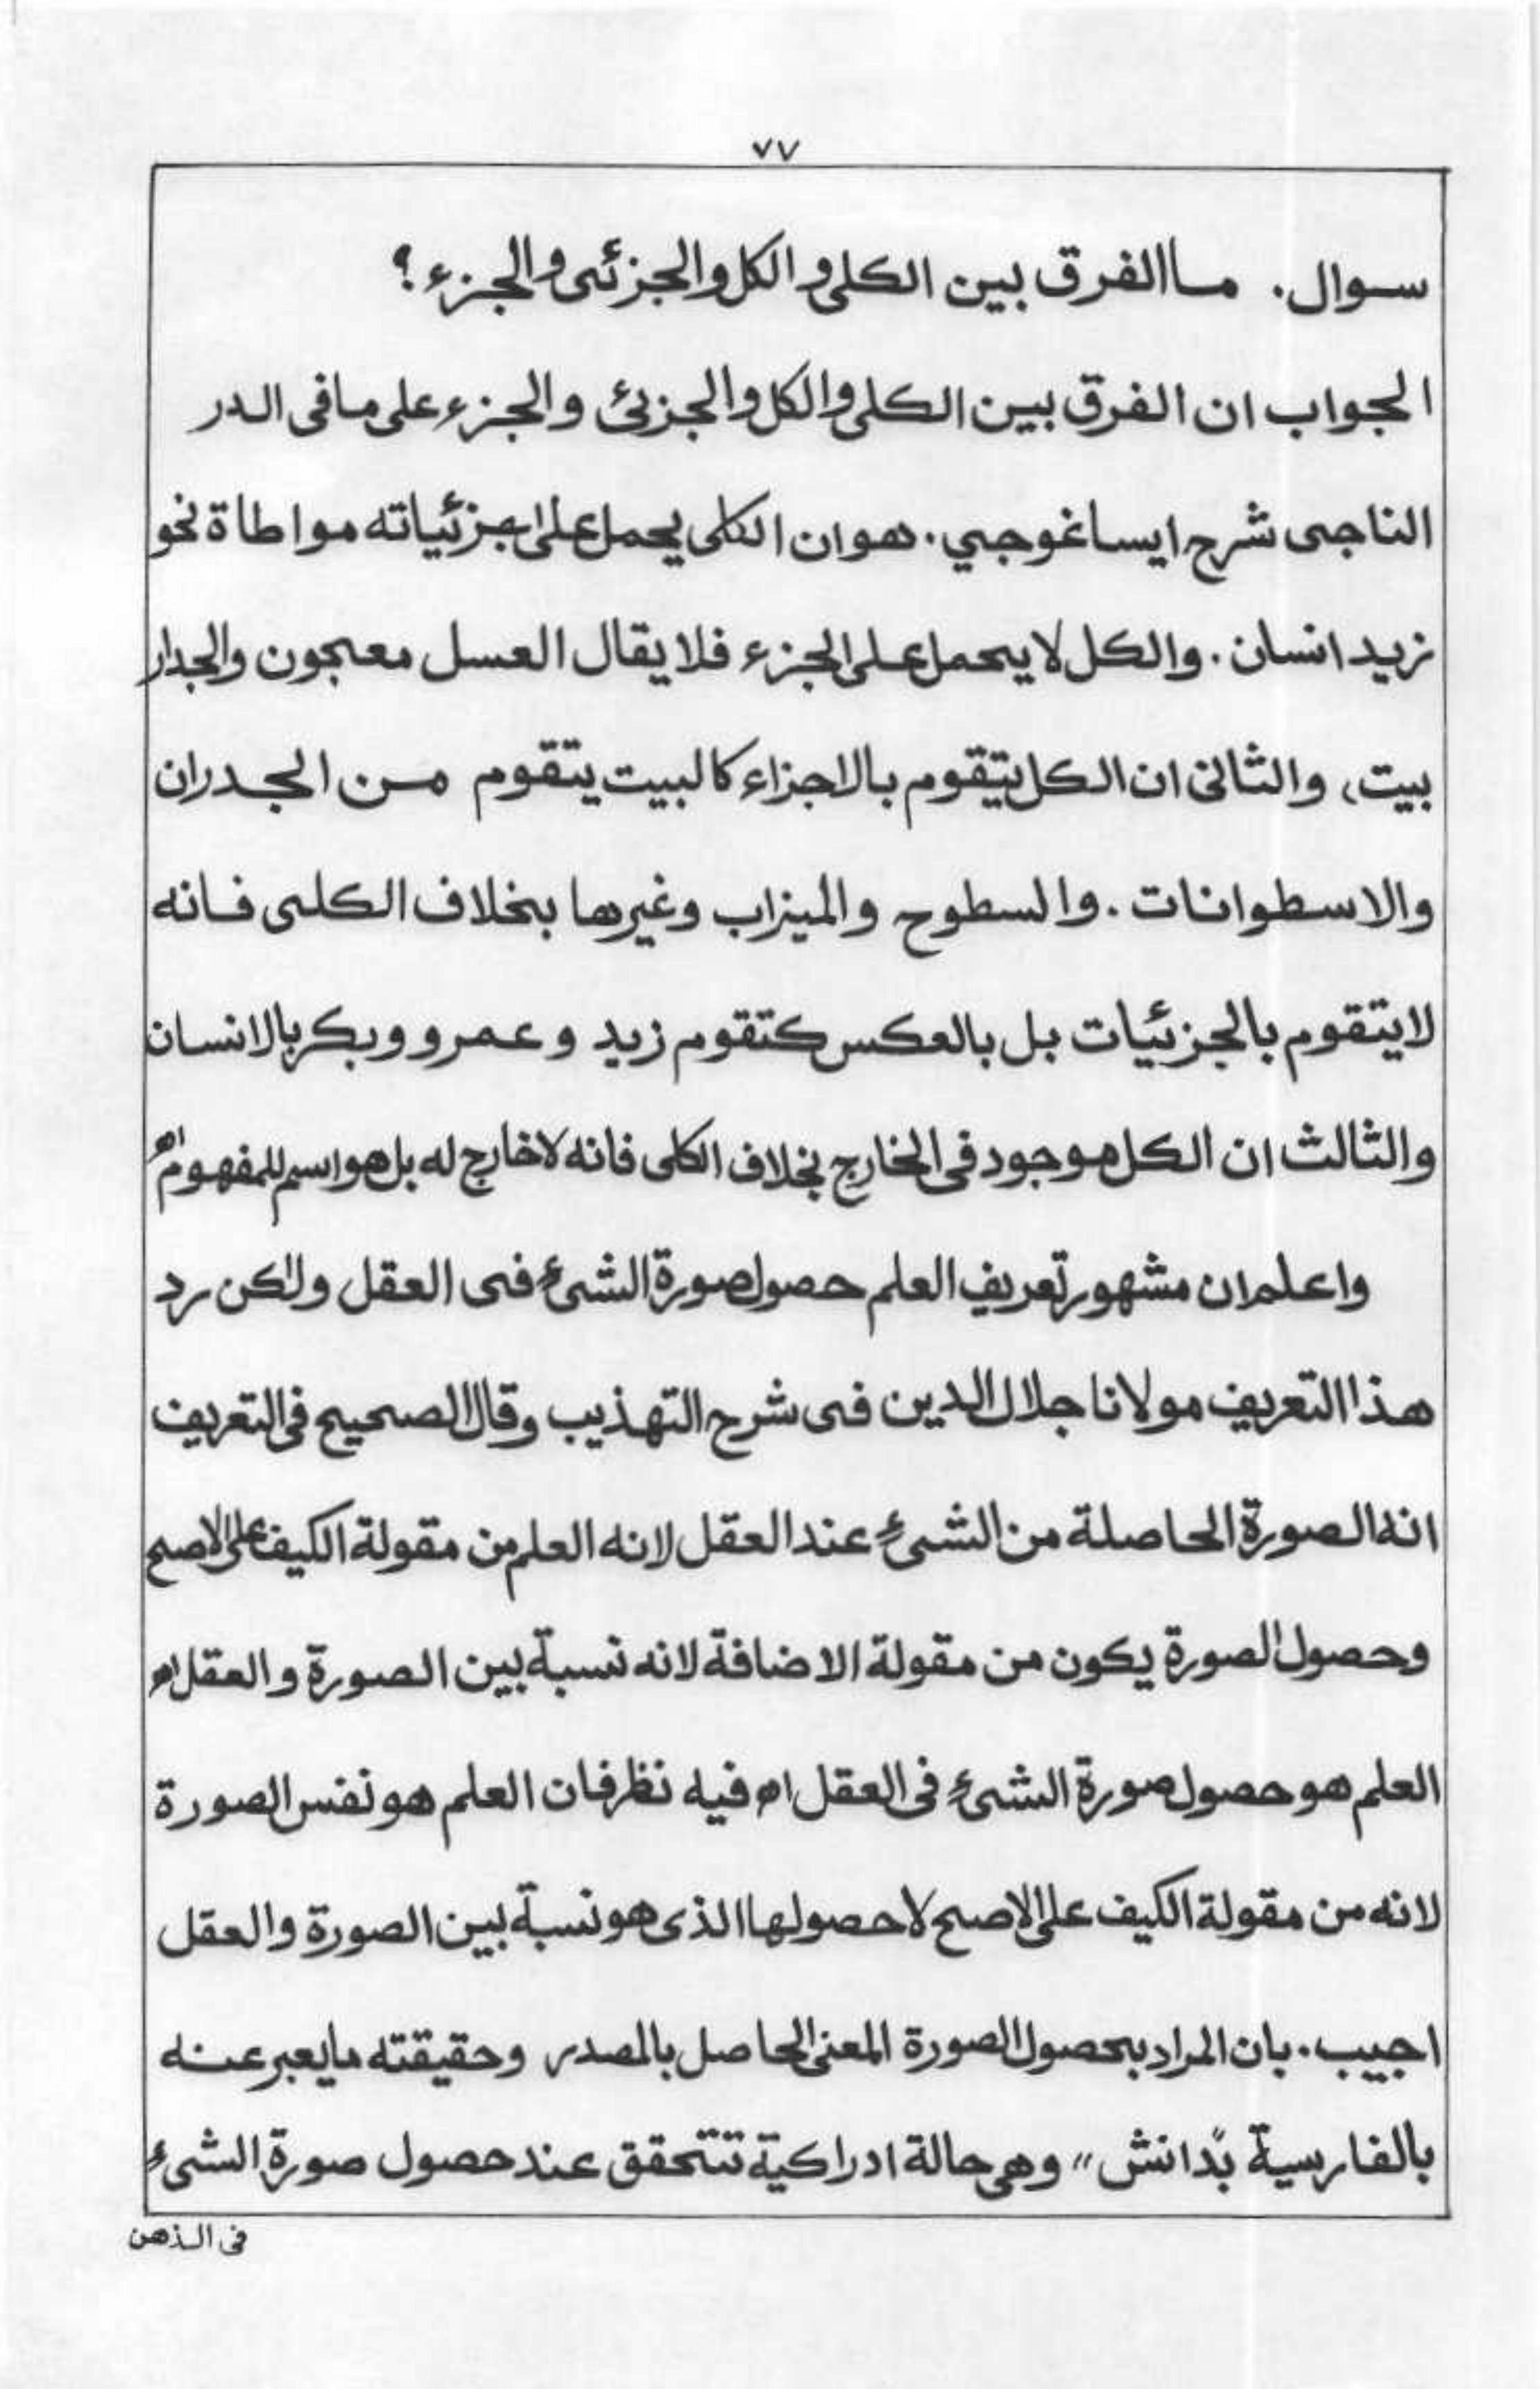 ٧٧
سوال. ما الفرق بين الكلى و الكل والجزئى والجزء؟
الجواب ان الفرق بين الكلى والكل والجزئ والجزء على ما فى الدر
الناجى شرح ايساغوجي. هو ان الكلى يحمل على جزئياته مواطاة نحو
زيد انسان. والكل لا يحمل على الجزء فلا يقال العسل معجون والجدار
بيت، والثانى ان الكل يتقوم بالاجزاء كالبيت يتقوم من الجدران
والاسطوانات. والسطوح والميزاب وغيرها بخلاف الكلى فانه
لا يتقوم بالجزئيات بل بالعكس كتقوم زيد وعمرو وبكر بالانسان
والثالث ان الكل موجود فى الخارج بخلاف الكلى فانه لا خارج له بل هو اسم للمفهوم اه
واعلم ان مشهور تعريف العلم حصول صورة الشىء فى العقل ولكن رد
هذا التعريف مولانا جلال الدين فى شرح التهذيب وقال الصحيح فى التعريف
انه الصورة الحاصلة من الشىء عند العقل لانه العلم من مقولة الكيف على الاصح
وحصول الصورة يكون من مقولة الاضافة لانه نسبة بين الصورة والعقل اه
العلم هو حصول صورة الشىء فى العقل اه فيه نظر فان العلم هو نفس الصورة
لانه من مقولة الكيف على الاصح لا حصولها الذى هو نسبة بين الصورة والعقل
اجيب. بان المراد بحصول الصورة المعنى الحاصل بالمصدر وحقيقته ما يعبر عنه
بالفارسية بًدانش" وهى حالة ادراكية تتحقق عند حصول صورة الشىء
فى الذهن